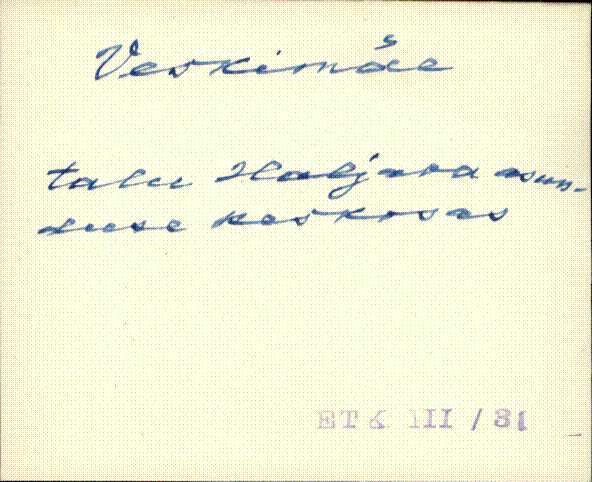 Veskimäe
talu Haljava asun-
duse keskosas
ETK III / 31